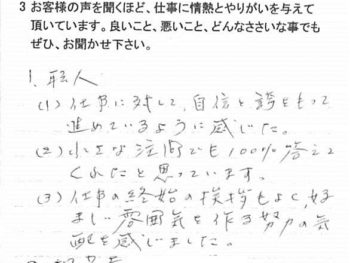 3 お客様の声を聞くほど、仕事に情熱とやりがいを与えて
頂いています。良いこと、悪いこと、どんなささいな事でも
ぜひ、お聞かせ下さい。
1. 職人
(1) 仕事に対して、自信と誇をもって
進めているように感じた。
(2) 小さな注問でも100%答えて
くれたと思っています。
(3) 仕事の終始の挨拶もよく、好
ましい雰囲気を作る努力の気
配を感じました。